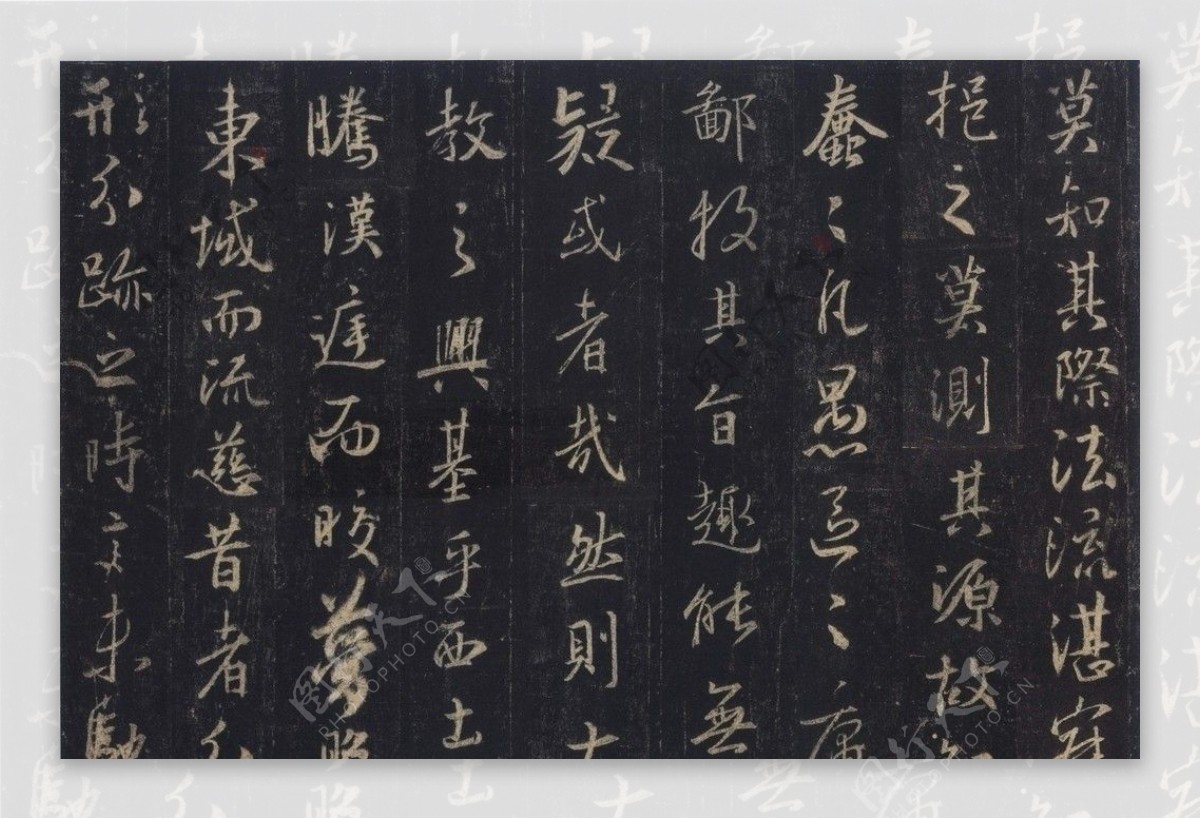 莫知其際法流湛寂
挹之莫測其源故知
蠢〻凡愚區〻庸
鄙投其旨趣能無
疑或者哉然則大
教之興基乎西土
騰漢庭而皎夢照
東域而流慈昔者分
形分跡之時言未馳
图行天下
PHOTOPHOTO.CN